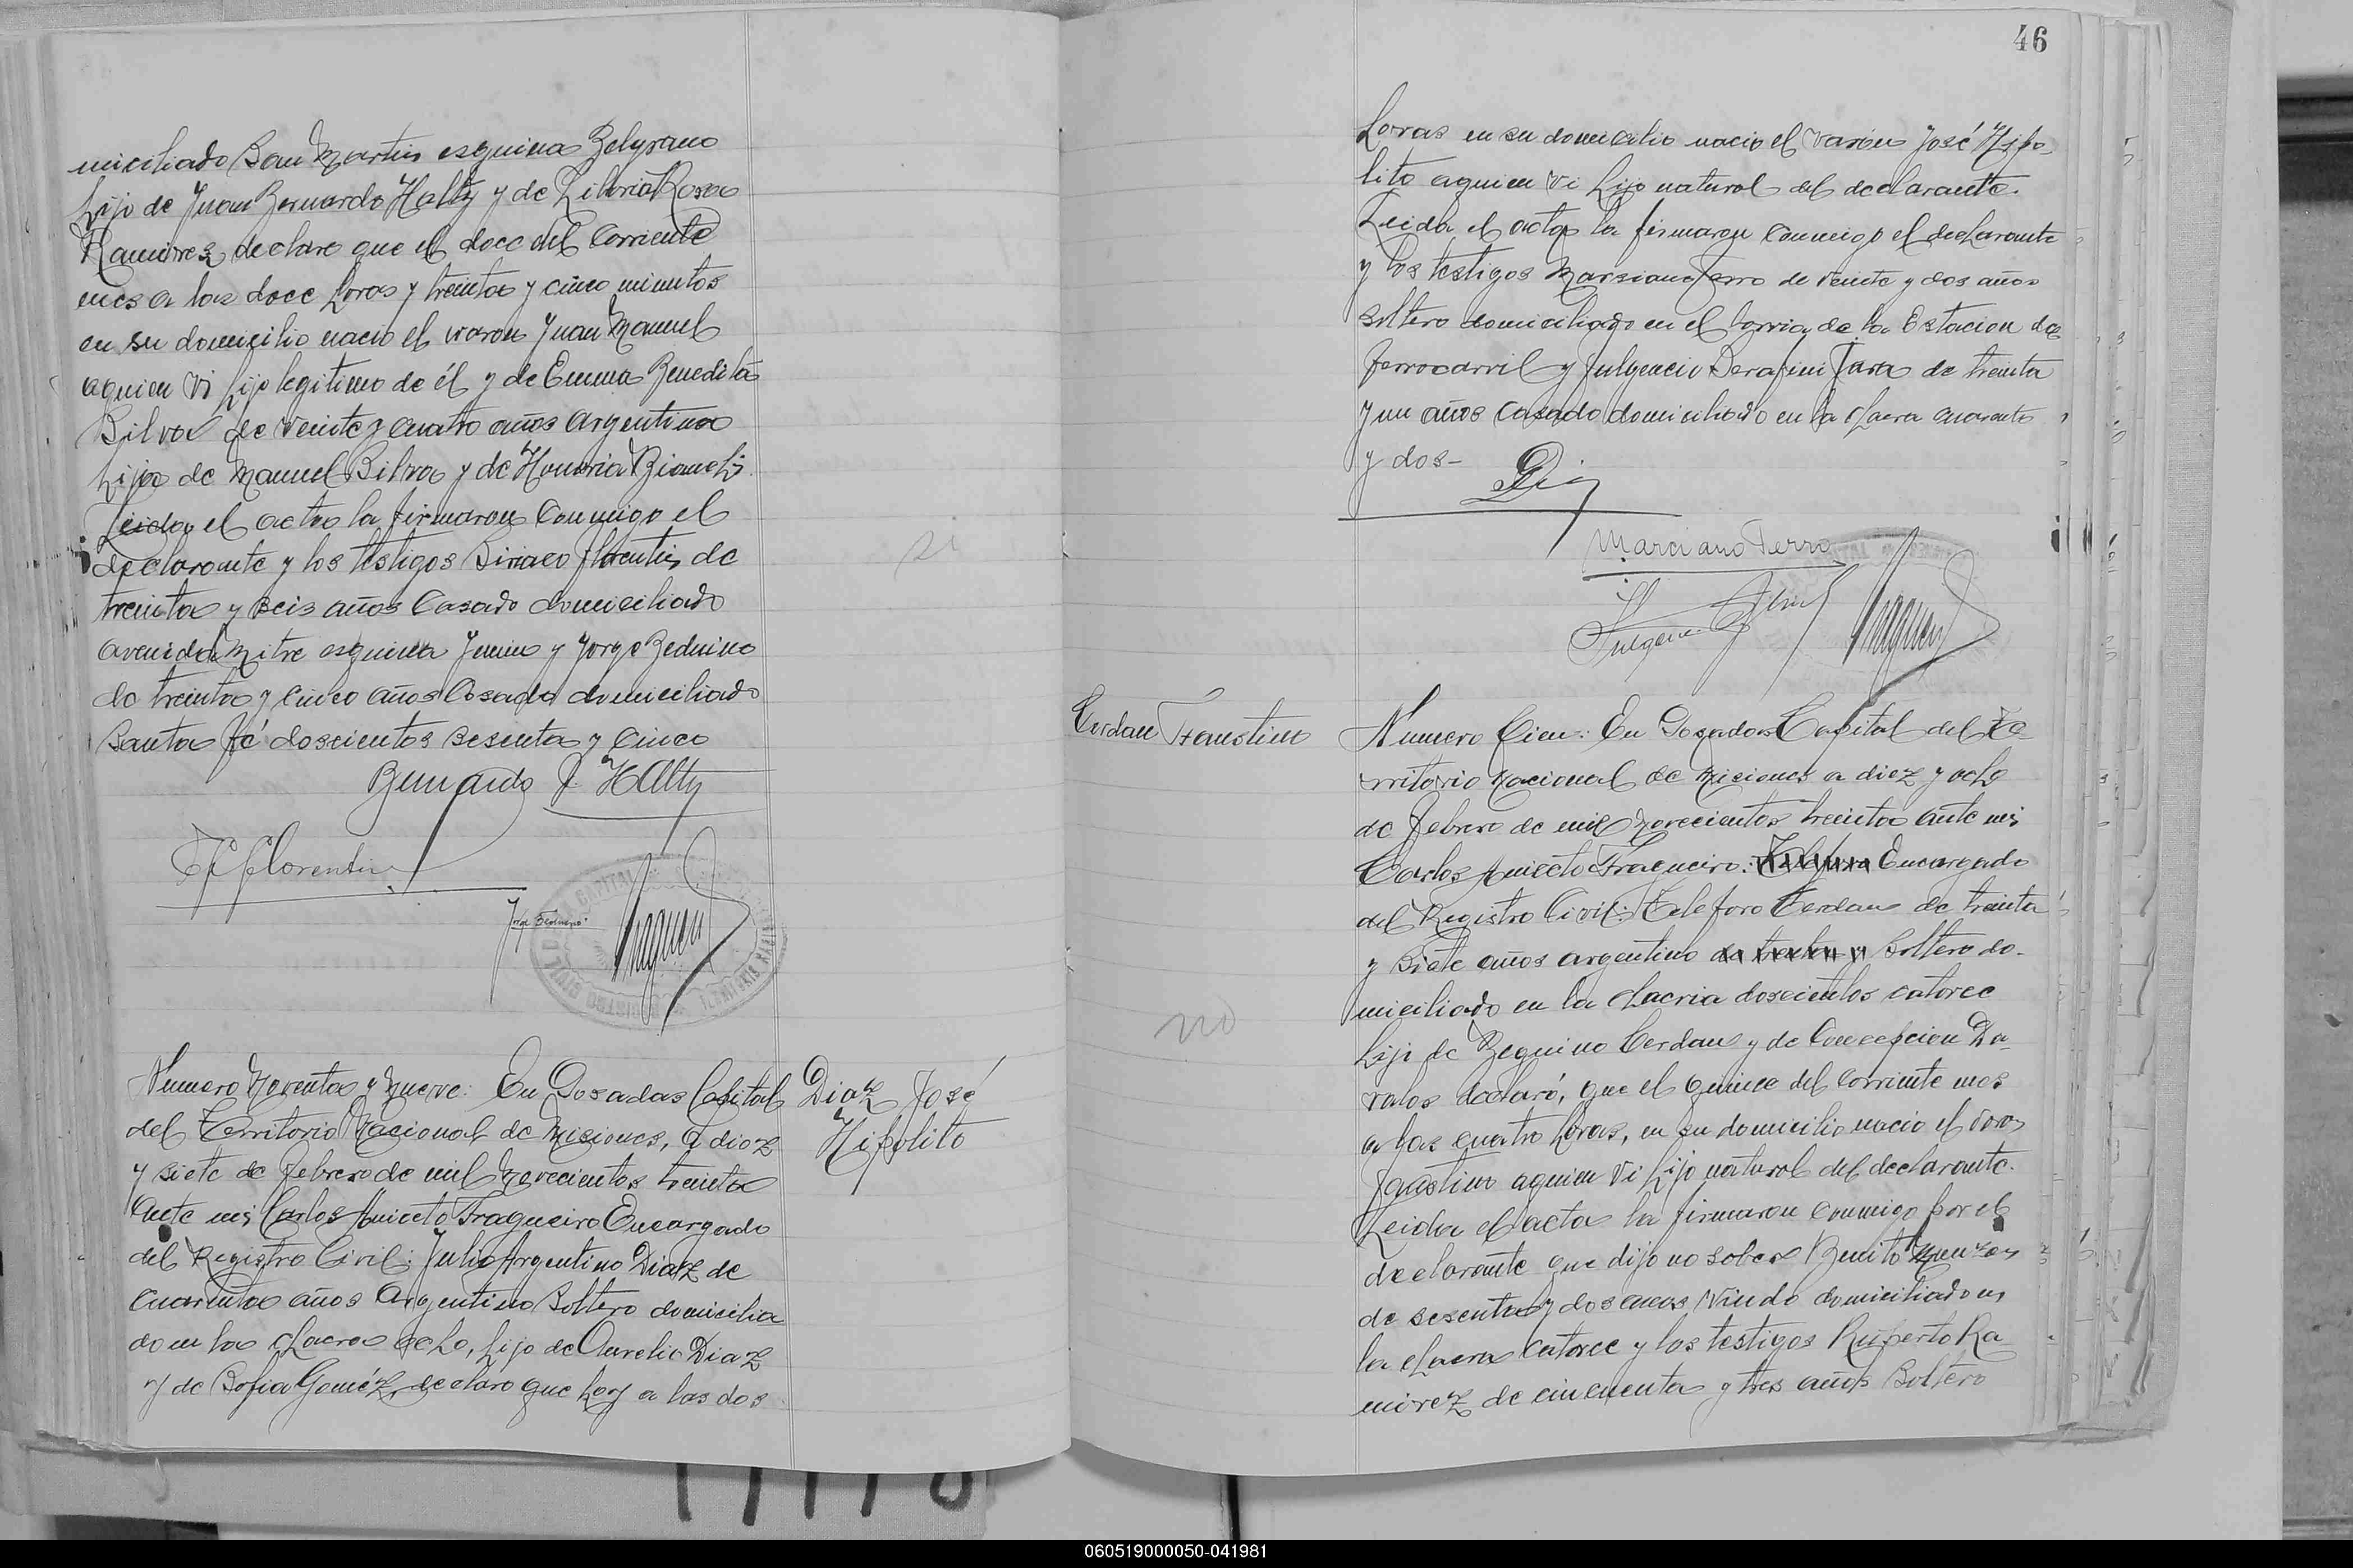 miciliado San Martin esquina Belgrano
hijo de Juan Bernardo Halty y de Liboria Rosa
Ramirez declaro que el doce del corriente
mes a las doce horas y treinta y cinco minutos
en su domicilio nacio el varon Juan Manuel
aquien vi hijo legitimo de él y de Emma Benedita
Silva de veinte y cuatro años argentina
hija de Manuel Silva y de Honoria Bianchi
Leida el acta la firmaron conmigo el
declarante y los testigos Siriaco Florentin de
treinta y seis años casado domiciliado
avenida Mitre esquina Junin y Jorge Beduino
de treinta y cinco años casado domiciliado
Santa Fé doscientos sesenta y cinco
Bernardo J. Halty
Florentin
si
Numero Noventa y Nueve: En Posadas Capital
del Territorio Nacional de Misiones, a diez
y siete de febrero de mil novecientos treinta
ante mi Carlos Aniceto Fragueiro Encargado
del Registro Civil: Julio Argentino Diaz de
cuarenta años argentino soltero domicilia
do en la chacra ocho, hijo de Aurelio Diaz
y de Sofia Goméz, declaro que hoy a las dos
Diaz José
Hipolito
46
horas en su domicilio nacio el varon José Hipo-
lito aquien vi hijo natural del declarante.
Leida el acta la firmaron conmigo el declarante
y los testigos Marsiano Ferro de veinte y dos años
soltero domiciliado en el barrio de la Estacion de
ferrocarril y Fulgencio Serafini Jara de treinta
y un años casado domiciliado en la chacra cuarenta
y dos-
Marciano Ferro
Cerdan Faustino
no
Numero Cien: En Posadas Capital del Te-
rritorio Nacional de Misiones a diez y ocho
de febrero de mil novecientos treinta ante mi
Carlos Aniceto Fragueiro: Encargado
del Registro Civil: Teleforo Cerdan de treinta
y siete años argentino soltero do-
miciliado en la chacria doscientos catorce
hijo de Bequino Cerdan y de Concepcion Da-
valos declaró, que el quince del corriente mes
a las cuatro horas, en su domicilio nacio el varon
Faustino aquien vi hijo natural del declarante.
Leida el acta la firmaron conmigo por el
declarante que dijo no saber Benito
de sesenta y dos años viudo domiciliado en
la chacra catorce y los testigos Ruperto Ra
mirez de cincuenta y tres años soltero
060519000050-041981